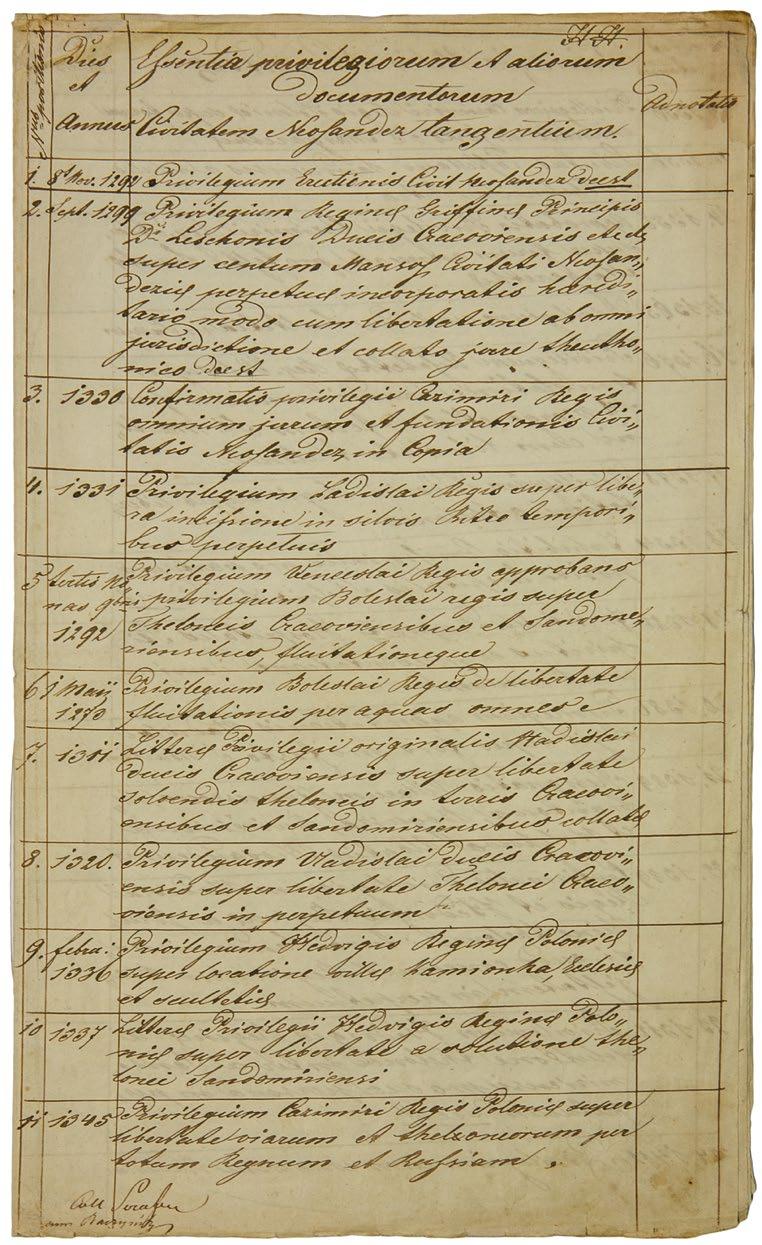 Nrus positionis
Dies
et
Annus
H. H.
Essentia privilegiorum et aliorum
documentorum
Civitatem Neosandez tangentium.
Adnotatio
1. 8t Nov. 1292 Privilegium Erectionis Civit Neosandez deest
2. Sept. 1299 Privilegium Reginę Griffinę Principis
Dni Leschonis Ducis Cracoviensis etc etc
super centum Mansos Civitati Neosan„
dezię perpetuę incorporatis hæredi„
tario modo cum libertatione ab omni
jurisdictione et collato jure theutho„
nico deest
3. 1330 Confirmatio privilegii Cazimiri Regis
omnium jurum et fundationis Civi„
tatis Neosandez in Copia
4. 1331 Privilegium Ladislai Regis super libe„
ra incisione in silvis Ritro tempori„
bus perpetuis
5 tertio No
nas 9bris
1292
Privilegium Venceslai Regis approbans
privilegium Boleslai regis super
Theloneis Cracoviensibus et Sandome„
riensibus, fluitationeque
6 1 Maij
1270
Privilegium Boleslai Regis de libertate
fluitationis per aquas omnes
7. 1311 Litterę Privilegii originalis Vladislai
ducis Cracoviensis super libertate
solvendis theloneis in terris Cracovi„
ensibus et Sandomiriensibus collatę
8. 1320. Privilegium Vladislai ducis Cracovi„
ensis super libertate Thelonei Craco„
viensis in perpetuum
9. febru:
1336
Privilegium Hedvigis Reginę Polonię
super locatione villę Kamionka, Eclesię
et scultetię
10 1337 Litterę Privilegii Hedvigis Reginę Polo„
nię super libertate a solutione the„
lonei Sandomiriensi
11 1345 Privilegium Cazimiri Regis Polonię super
libertate viarum et theloneorum per
totum Regnum et Russiam.
Coll